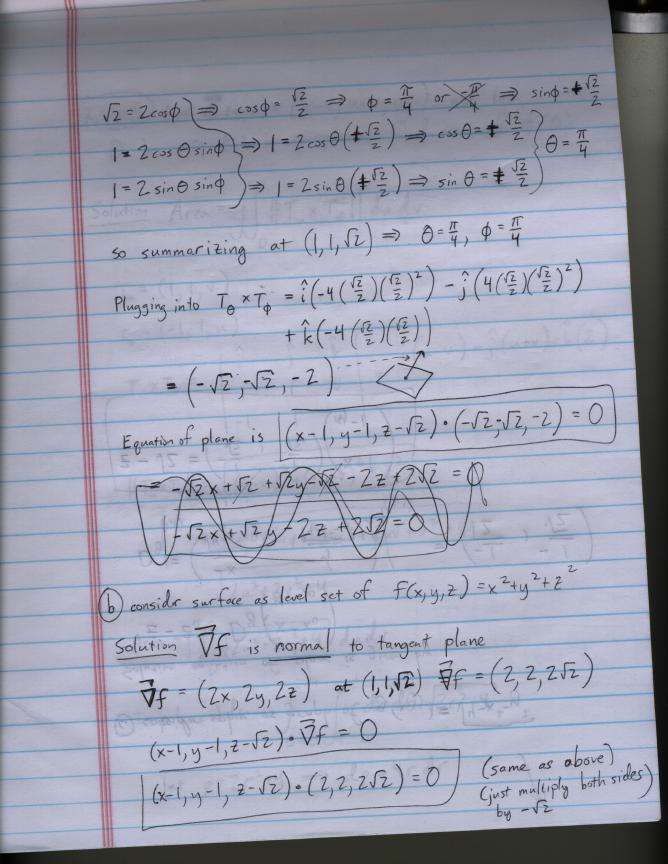 √2 = 2cosϕ ⇒ cosϕ = √2/2 ⇒ ϕ = π/4 or -π/4 ⇒ sinϕ = +√2/2
1 = 2cosθ sinϕ ⇒ 1 = 2cosθ(+√2/2) ⇒ cosθ = +√2/2
1 = 2 sinθ sinϕ ⇒ 1 = 2sinθ(+√2/2) ⇒ sinθ = +√2/2 } θ = π/4
so summarizing at (1,1,√2) ⇒ θ = π/4, ϕ = π/4
Plugging into T_θ × T_ϕ = î(-4(√2/2)(√2/2)²) - ĵ(4(√2/2)(√2/2)²)
+ k̂(-4(√2/2)(√2/2))
= (-√2, -√2, -2)
Equation of plane is (x-1, y-1, z-√2)•(-√2, -√2, -2) = 0
= -√2x + √2 + √2y - √2 - 2z + 2√2 = 0
-√2x + √2y - 2z + 2√2 = 0
ⓑ considr surface as level set of f(x,y,z) = x²+y²+z²
Solution ∇f is normal to tangent plane
∇f = (2x, 2y, 2z) at (1,1,√2) ∇f = (2, 2, 2√2)
(x-1, y-1, z-√2)•∇f = 0
(x-1, y-1, z-√2)•(2, 2, 2√2) = 0
(same as above)
(just multiply both sides)
by -√2